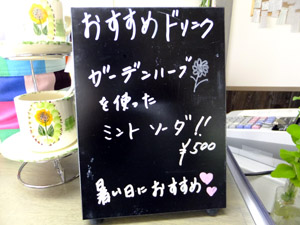 おすすめドリンク
ガーデンハーブ
を使った
ミント ソーダ!!
¥500
暑い日におすすめ